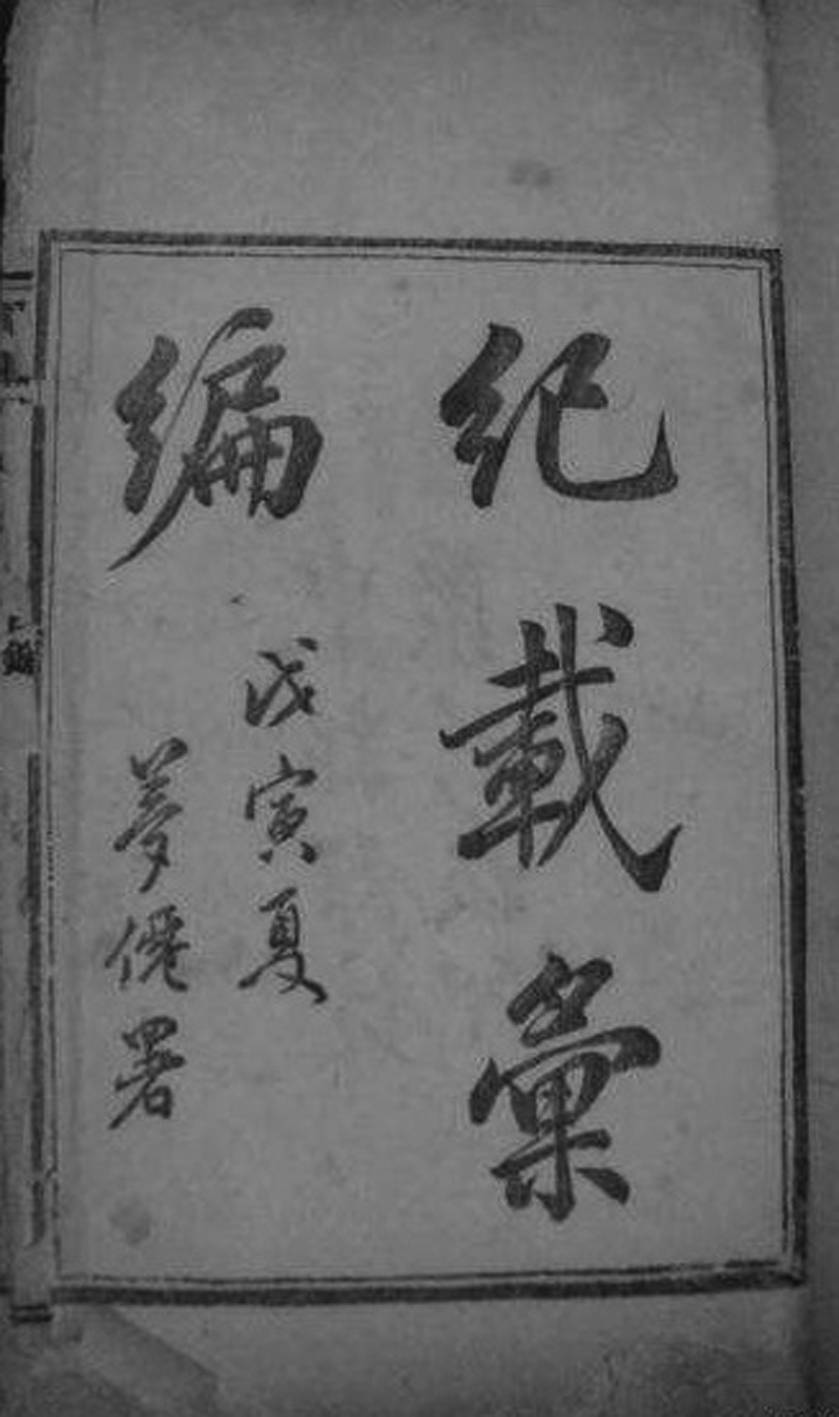 紀載彙
編
戊寅夏
夢僊署